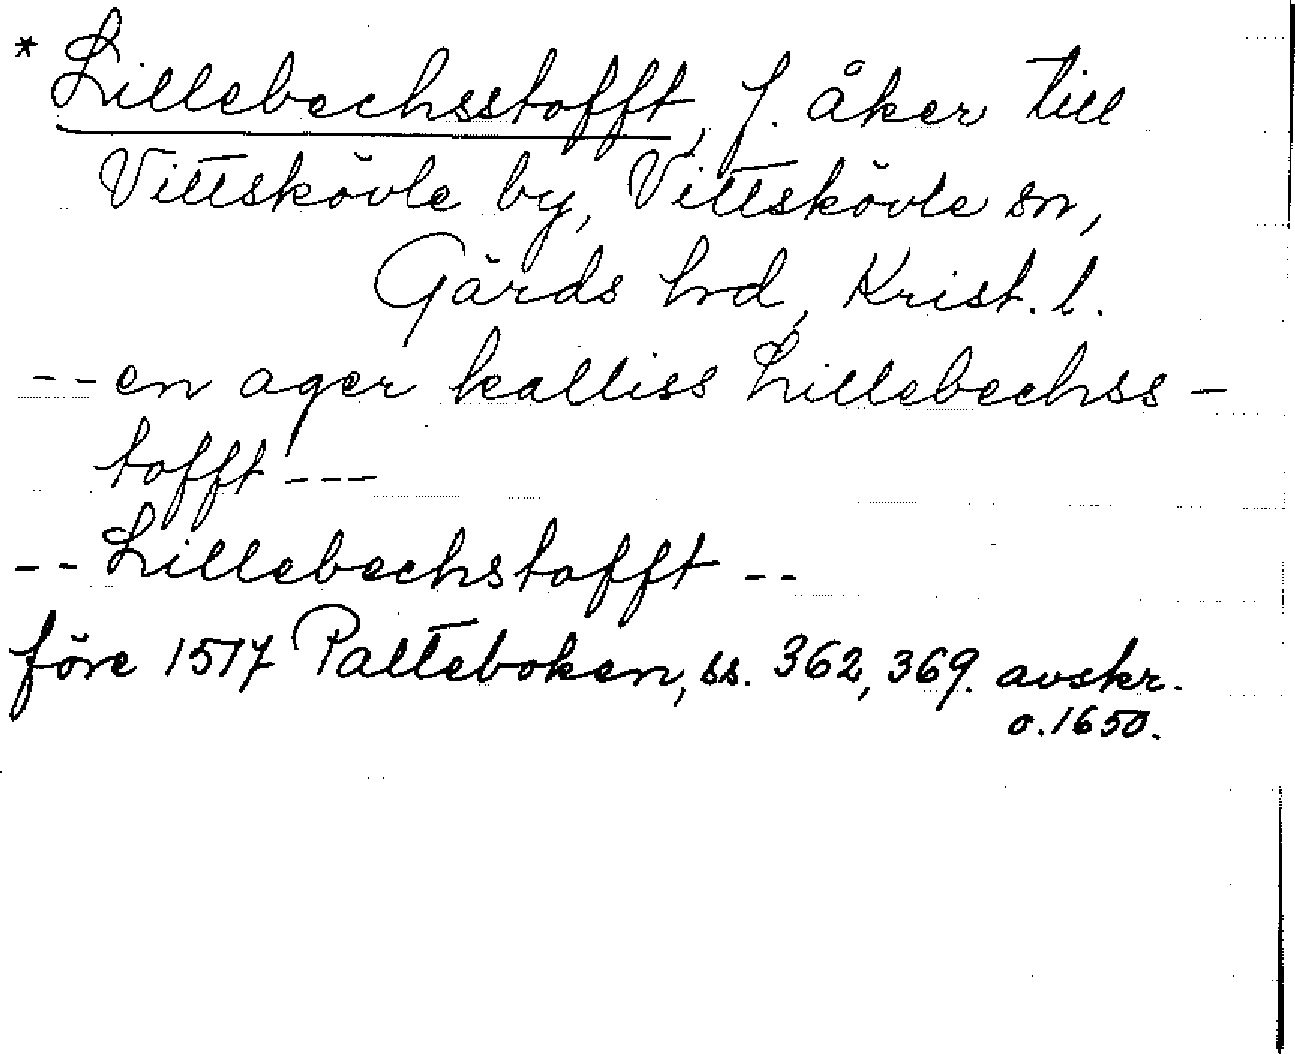 * Lillebechsstofft, f. åker till
Vittskövle by, Vittskövle sn,
Gärds hrd, Krist. l.
-- en ager kalliss Lillebechss-
tofft ---
-- Lillebechstofft --
före 1517 Palteboken, ss. 362, 369. avskr.
o. 1650.